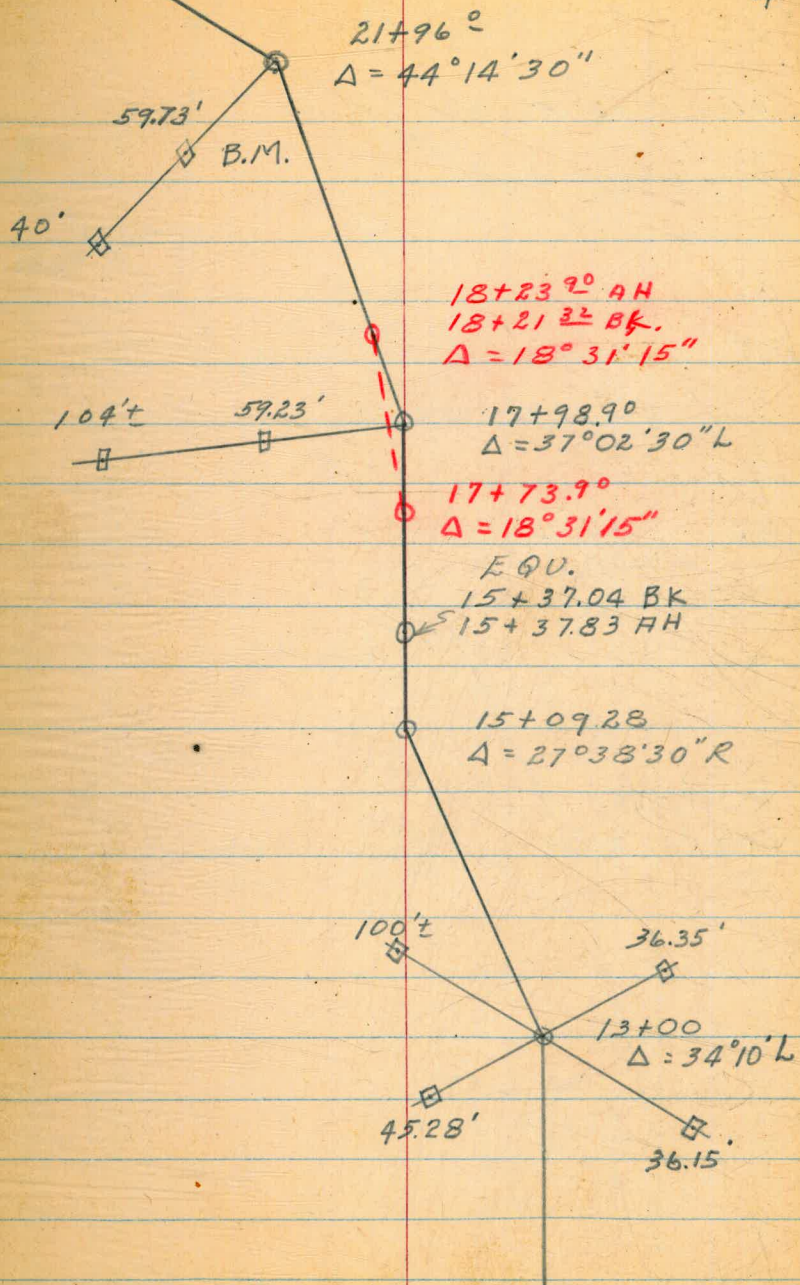 21+96º
Δ = 44°14'30"
59.73'
B.M.
40'
18+23 9º AH
18+21 32 BK.
Δ = 18° 31' 15"
104'±
59.23'
17+98.9º
Δ = 37°02'30" L
17+73.9º
Δ = 18°31'15"
EQU.
15+37.04 BK
15+37.83 AH
15+09.28
Δ = 27°38'30" R
100'±
36.35'
13+00
Δ = 34°10' L
45.28'
36.15